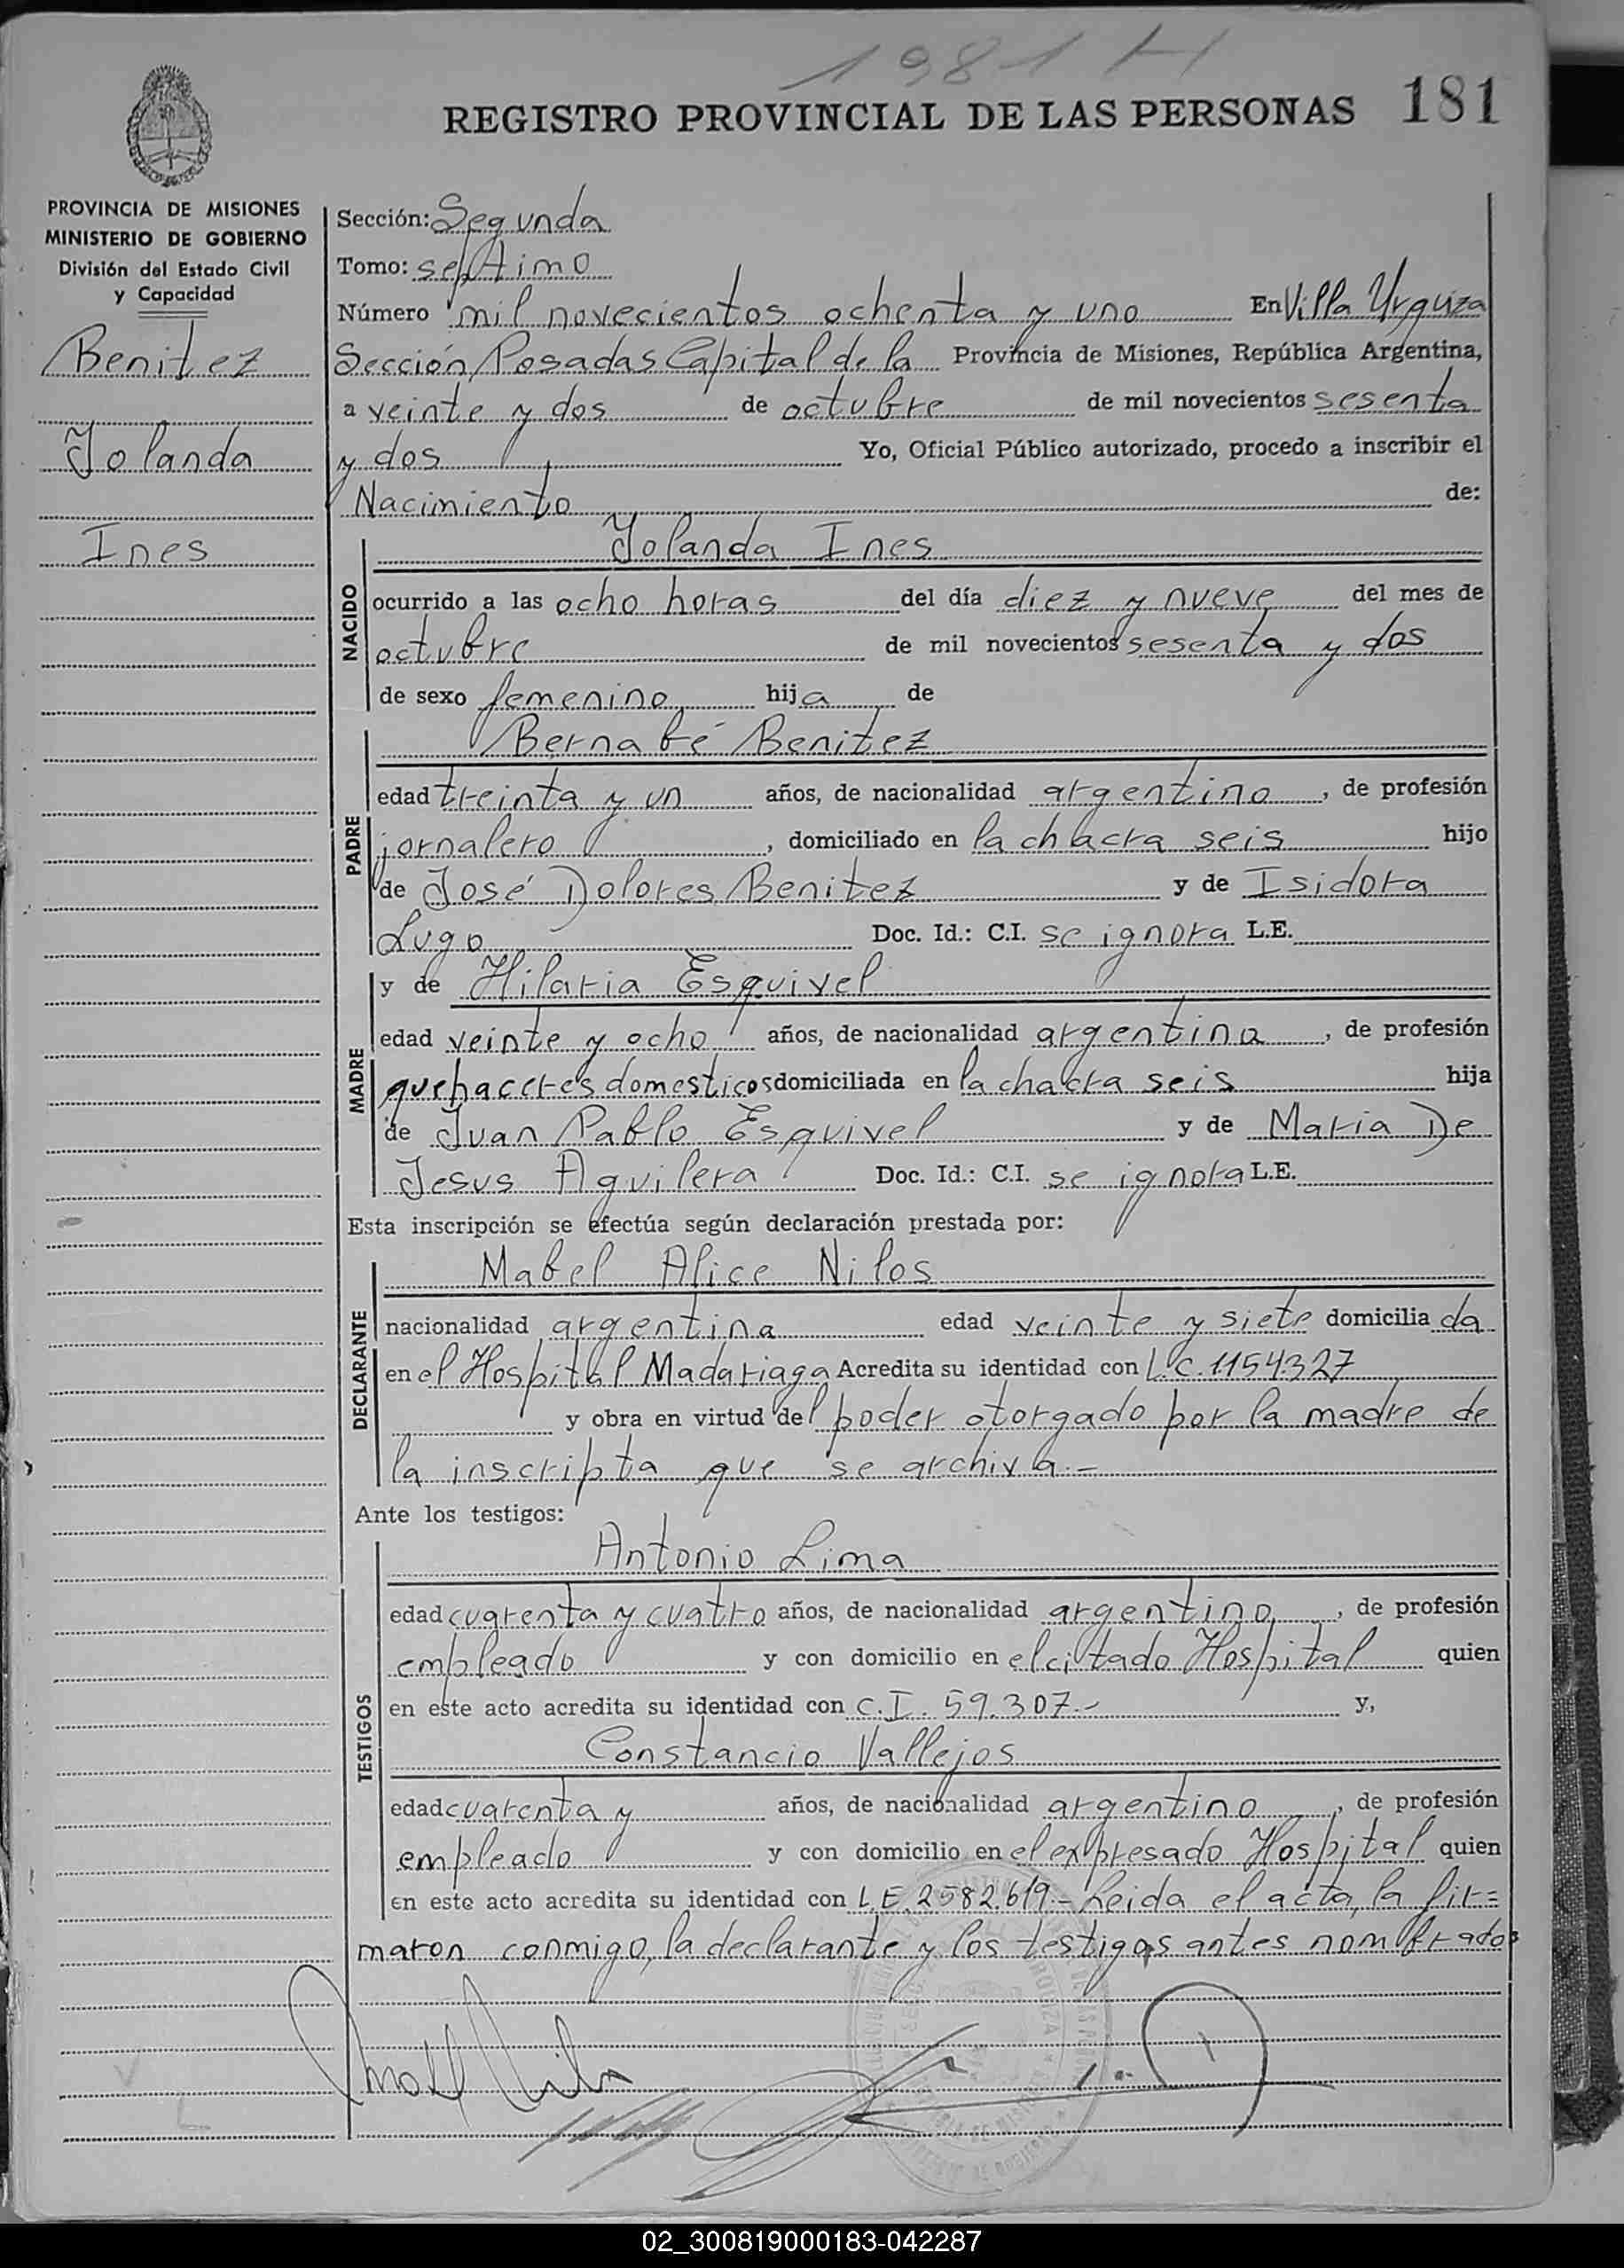 1981 H
REGISTRO PROVINCIAL DE LAS PERSONAS 181
PROVINCIA DE MISIONES
MINISTERIO DE GOBIERNO
División del Estado Civil
y Capacidad
Benitez
Yolanda
Ines
Sección: Segunda
Tomo: septimo
Número mil novecientos ochenta y uno En Villa Urquiza
Sección Posadas Capital de la Provincia de Misiones, República Argentina,
a veinte y dos de octubre de mil novecientos sesenta
y dos Yo, Oficial Público autorizado, procedo a inscribir el
Nacimiento de:
NACIDO
Yolanda Ines
ocurrido a las ocho horas del día diez y nueve del mes de
octubre de mil novecientos sesenta y dos
de sexo femenino hija de
PADRE
Bernabé Benitez
edad treinta y un años, de nacionalidad argentino, de profesión
jornalero, domiciliado en la chacra seis hijo
de José Dolores Benitez y de Isidora
Lugo Doc. Id.: C.I. se ignora L.E.
MADRE
y de Hilaria Esquivel
edad veinte y ocho años, de nacionalidad argentina, de profesión
quehaceres domesticos domiciliada en la chacra seis hija
de Juan Pablo Esquivel y de Maria De
Jesus Aguilera Doc. Id.: C.I. se ignora L.E.
Esta inscripción se efectúa según declaración prestada por:
DECLARANTE
Mabel Alice Nilos
nacionalidad argentina edad veinte y siete domiciliada
en el Hospital Madariaga Acredita su identidad con L.C. 1154327
y obra en virtud del poder otorgado por la madre de
la inscripta que se archiva.-
Ante los testigos:
TESTIGOS
Antonio Lima
edad cuarenta y cuatro años, de nacionalidad argentino, de profesión
empleado y con domicilio en el citado Hospital quien
en este acto acredita su identidad con C.I. 59.307.- y,
Constancio Vallejos
edad cuarenta y años, de nacionalidad argentino, de profesión
empleado y con domicilio en el expresado Hospital quien
en este acto acredita su identidad con L.E. 2582.619.- Leida el acta, la fir=
maron conmigo, la declarante y los testigos antes nombrados
02_300819000183-042287